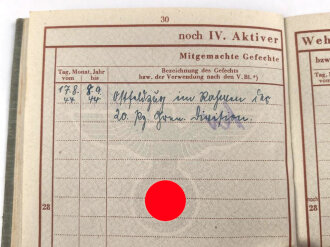 30
noch IV. Aktiver
Mitgemachte Gefechte
Tag, Monat, Jahr
von bis
Bezeichnung des Gefechts
bzw. der Verwendung nach den V. Bl. *)
17.8. 8.9.
44 44
Ostfeldzug im Rahmen der
20. Pz. Gren. Division.
28
Weh
Tag,
von
noch
28